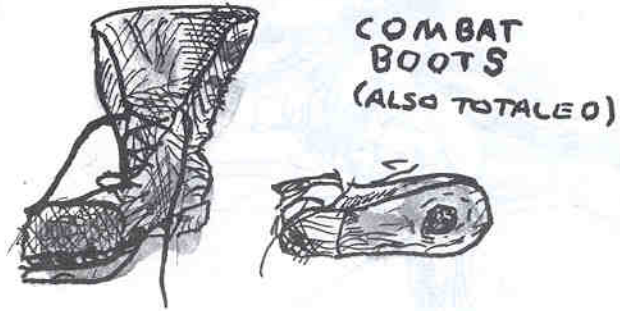 COMBAT
BOOTS
(ALSO TOTALED)